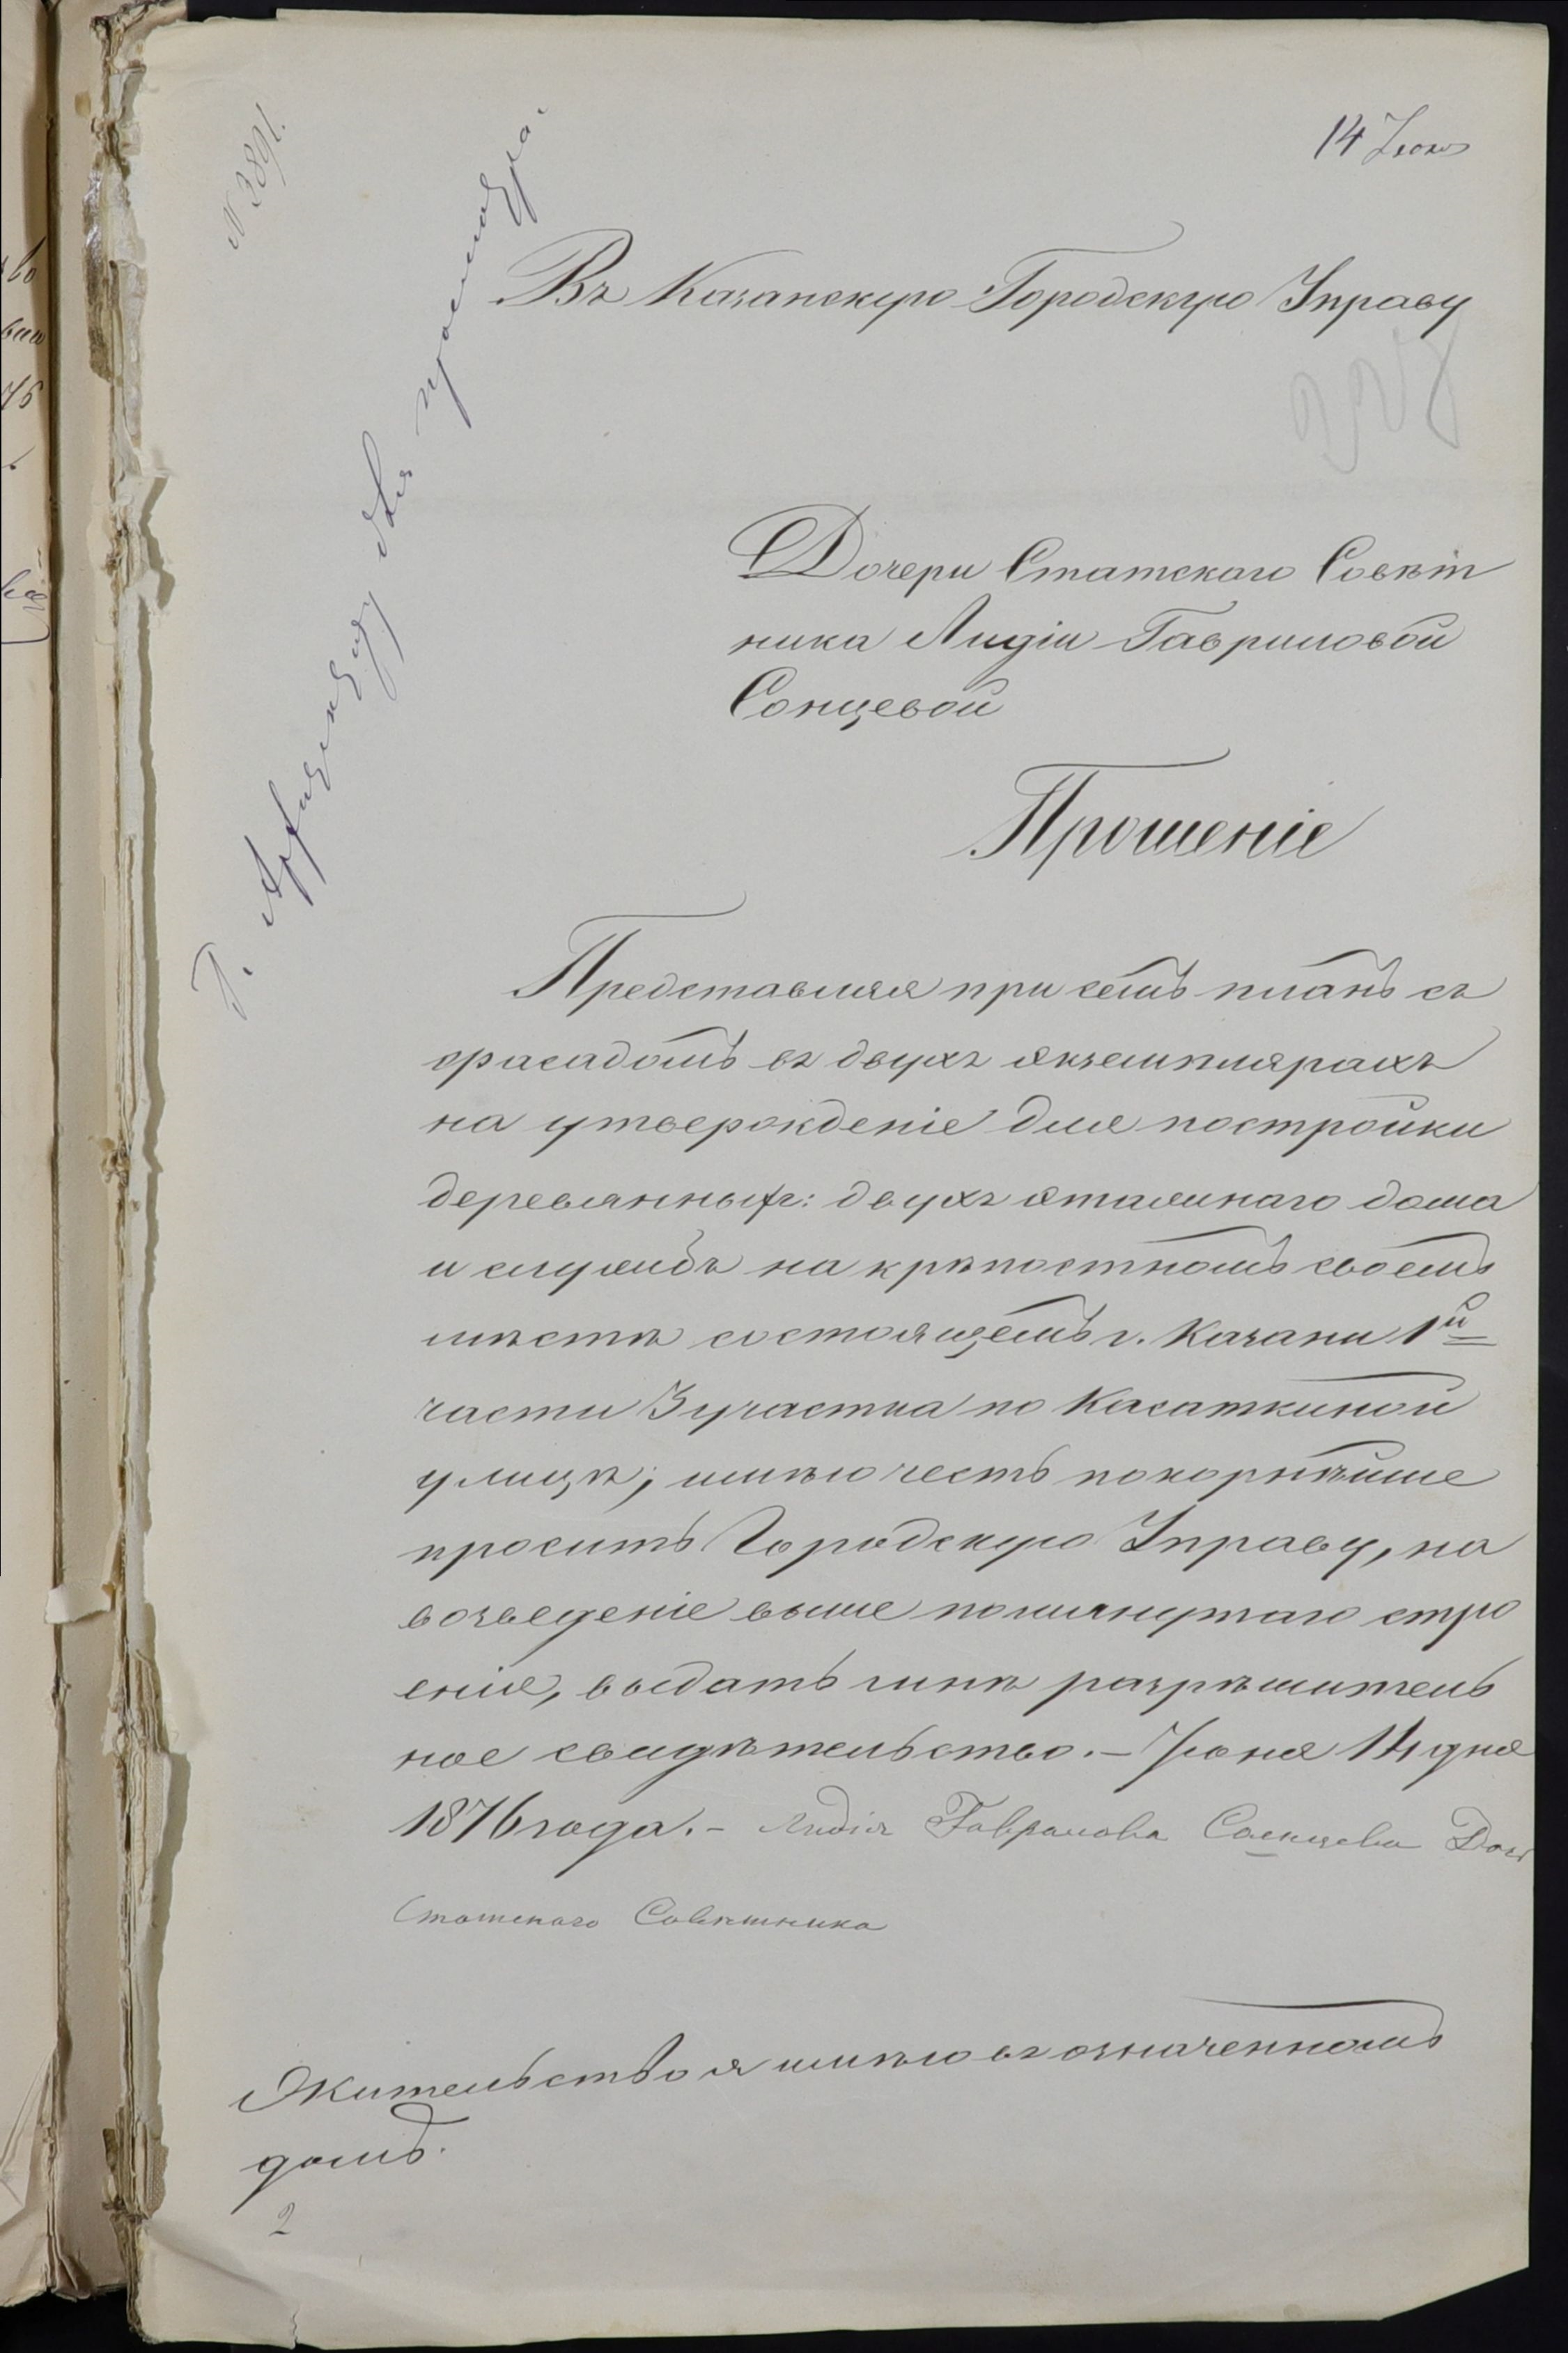 14 Июня
№ 3891.
Въ Казанскую Городскую Управу
Г. Архитектору для просмотра.
Дочери Статскаго Совѣт
ника Лидіи Гавриловой
Сонцевой
Прошеніе
Представляя при семъ планъ съ
фасадомъ въ двухъ экземплярахъ
на утвержденіе для постройки
деревянныхъ: двухъ этажнаго дома
и службъ на крѣпостномъ своемъ
мѣстѣ состоящемъ г. Казани 1й
части 3 участка по Касаткиной
улицѣ; имѣю честь покорнѣйше
просить Городскую Управу, на
возведеніе выше помянутаго стро
енія, выдать мнѣ разрѣшитель
ное свидѣтельство. – Іюня 14 дня
1876 года. – Лидія Гаврилова Солнцева Дочь
Статскаго Совѣтника
Жительство я имѣю въ означенномъ
домѣ.
2